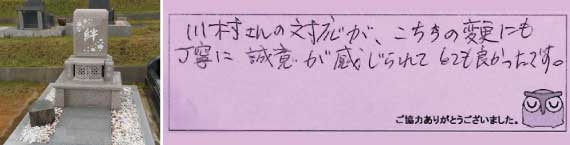 絆
川村さんの対応が、こちらの変更にも
丁寧に誠意が感じられてとても良かったです。
ご協力ありがとうございました。